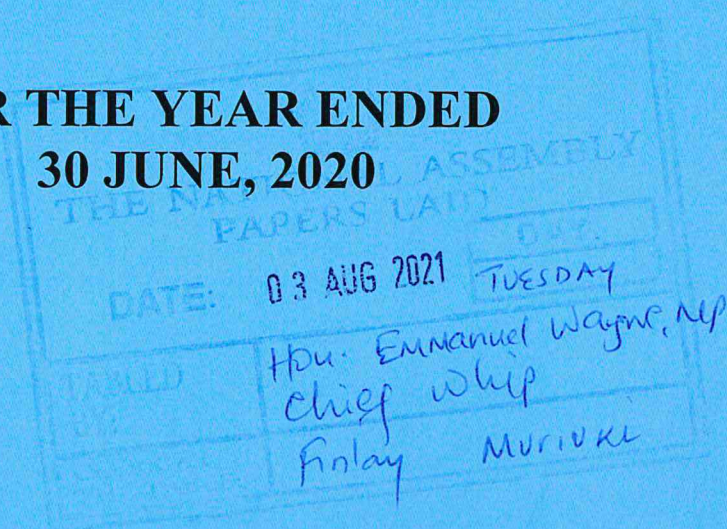 R THE YEAR ENDED
30 JUNE, 2020
THE NATIONAL ASSEMBLY
PAPERS LAID
DAY.
DATE: 03 AUG 2021 TUESDAY
TABLED
BY:
Hon. Emmanuel Wangwe, MP
Chief Whip
Finlay Muriuki